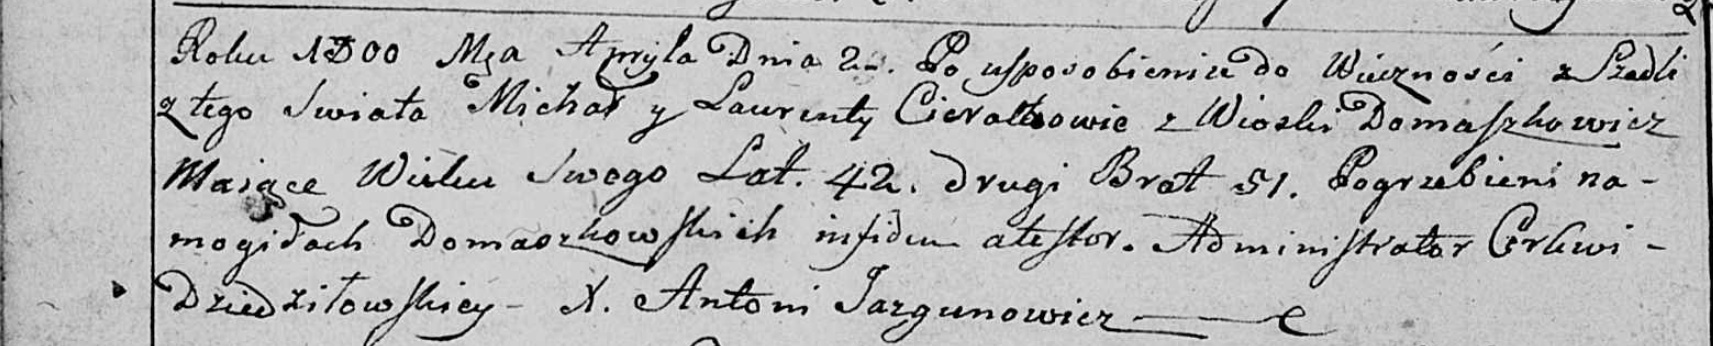 Roku 1800 Mca Apryla Dnia 2. Po usposobieniu do Wieczności z Szedli
z tego Swiata Michał y Laurenty Cierachowie z Wioski Domaszkowicz
Maiące Wieku Swego Lat. 42. drugi Brat 51. Pogrzebieni na-
mogiłach Domaszkowskich infidem atestor. Administrator Cerkwi-
Dziedziłowskiey- X. Antoni Jazgunowicz